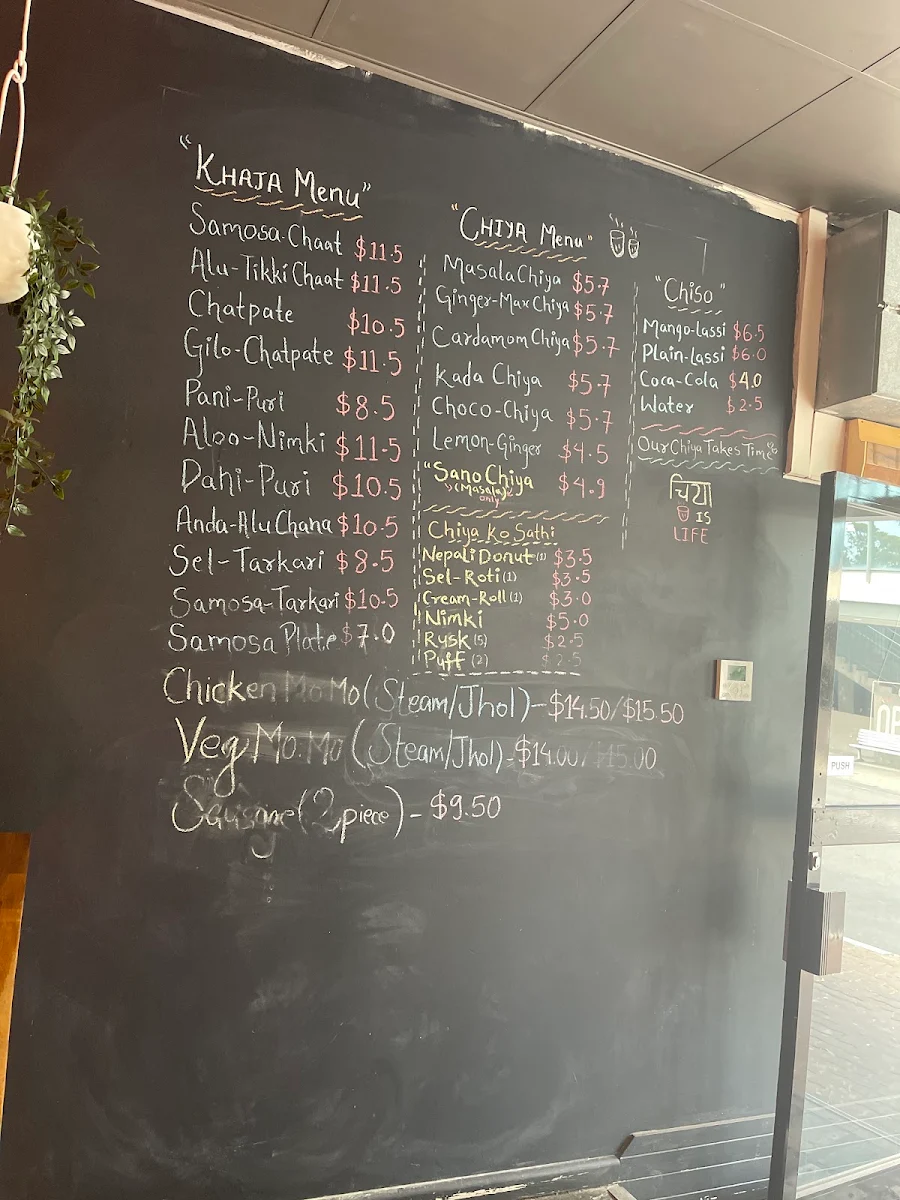 "KHAJA Menu"
Samosa-Chaat $11.5
Alu-Tikki Chaat $11.5
Chatpate $10.5
Gilo-Chatpate $11.5
Pani-Puri $8.5
Aloo-Nimki $11.5
Dahi-Puri $10.5
Anda-Alu Chana $10.5
Sel-Tarkari $8.5
Samosa-Tarkari $10.5
Samosa Plate $7.0
Chicken Mo Mo (Steam/Jhol) - $14.50/$15.50
Veg Mo. Mo (Steam/Jhol) - $14.00/$15.00
Sausage (2 piece) - $9.50
"CHIYA Menu"
Masala Chiya $5.7
Ginger-Max Chiya $5.7
Cardamom Chiya $5.7
Kada Chiya $5.7
Choco-Chiya $5.7
Lemon-Ginger $4.5
"Sano Chiya $4.9
(Masala)
only
Chiya Ko Sathi
Nepali Donut (1) $3.5
Sel-Roti (1) $3.5
Cream-Roll (1) $3.0
Nimki $5.0
Rusk (5) $2.5
Puff (2) $2.5
"Chiso"
Mango-Lassi $6.5
Plain-Lassi $6.0
Coca-Cola $4.0
Water $2.5
Our Chiya Takes Time
चिया
IS
LIFE
PUSH